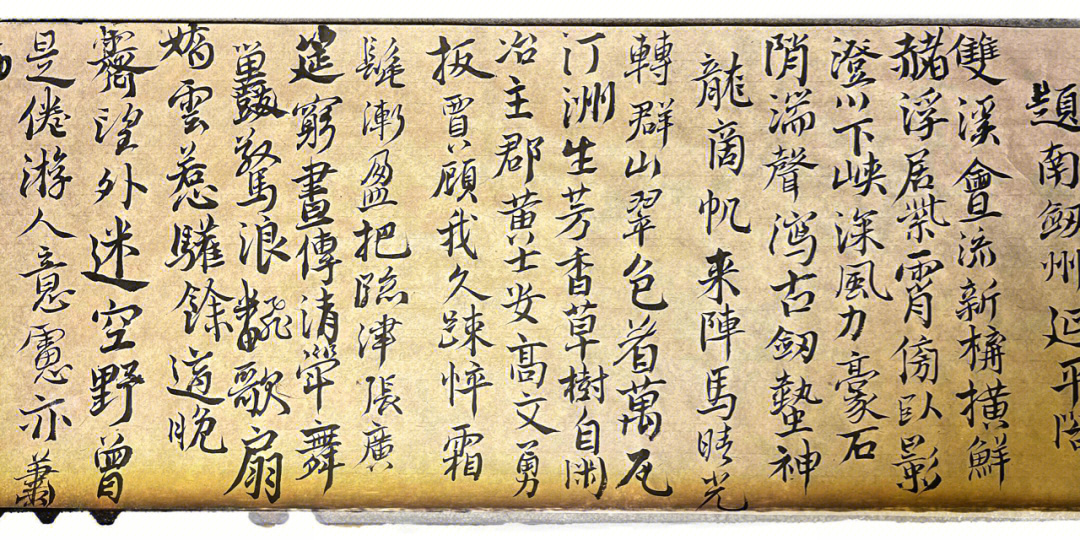 題南劔州延平閣
雙溪會流新構橫鮮
赭浮居紫霄傍臥影
澄川下峽深風力豪石
陗湍聲瀉古劔蟄神
龍商帆来陣馬晴光
轉群山翠色着萬瓦
汀洲生芳香草樹自閑
冶主郡黃士安高文勇
扳賈顧我久疎悴霜
髦漸盈把臨津張廣
筵窮晝傳清斝舞
鼉鼓驚浪飜歌扇
嬌雲惹驩餘適晚
霽望外迷空野曾
是倦游人意慮亦蕭